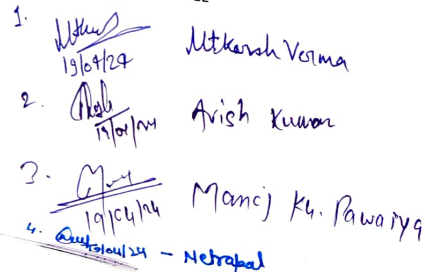 1.
19/04/24 Utkarsh Verma
2.
19/04/24 Arish Kumar
3.
19/04/24 Manoj Kh. Pawaiya
4. 19/04/24 - Netrapal